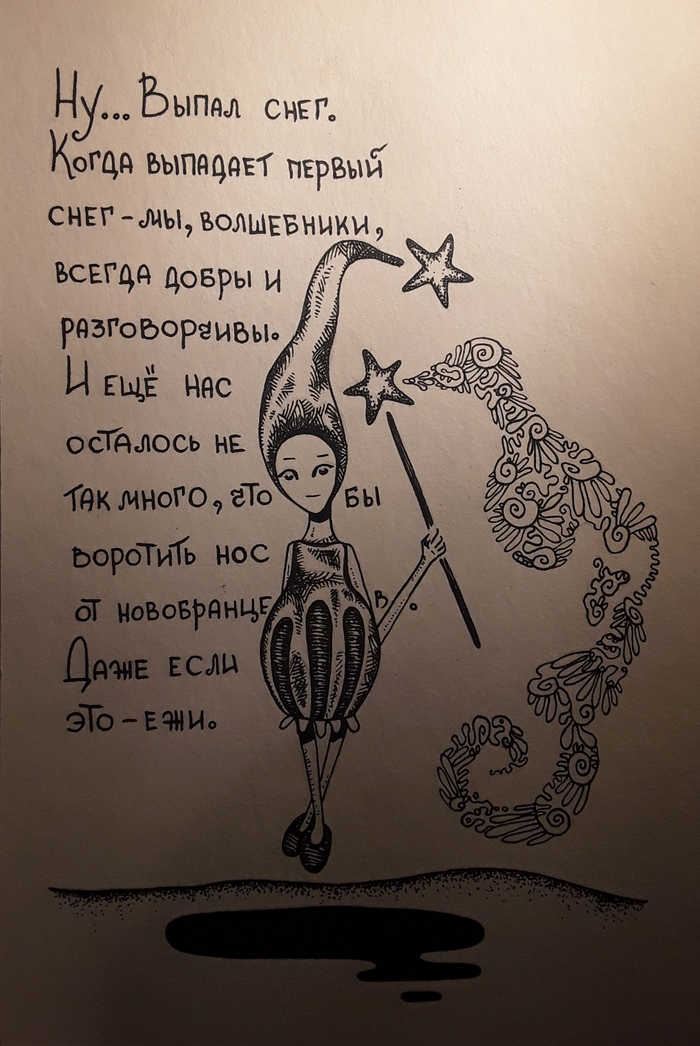 Ну... Выпал снег.
Когда выпадает первый
снег - мы, волшебники,
всегда добры и
разговорчивы.
И ещё нас
осталось не
так много, что бы
воротить нос
от новобранцев.
Даже если
это - ежи.